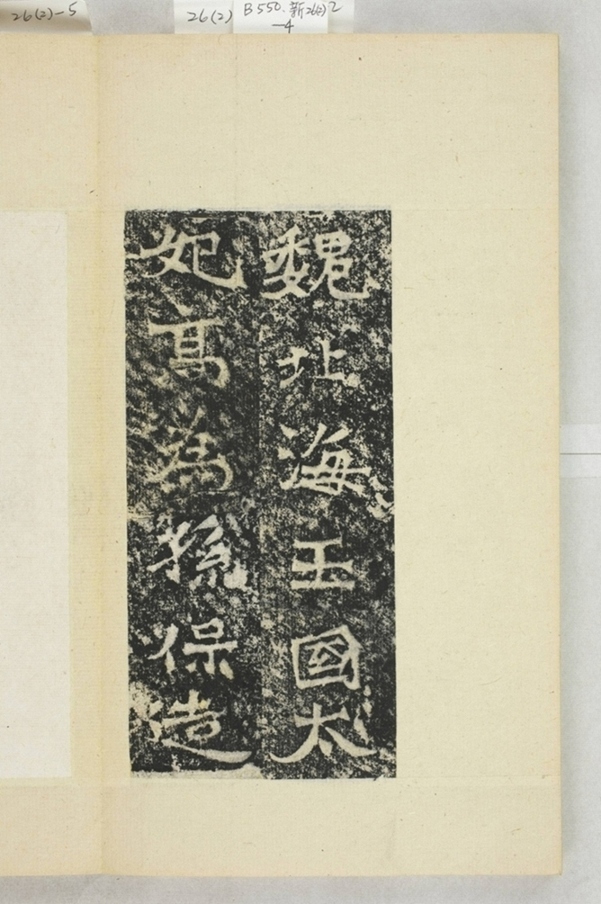 26(2)-5
26(2)
B550.新26(2)2
-4
魏北海王國太
妃高為孫保造